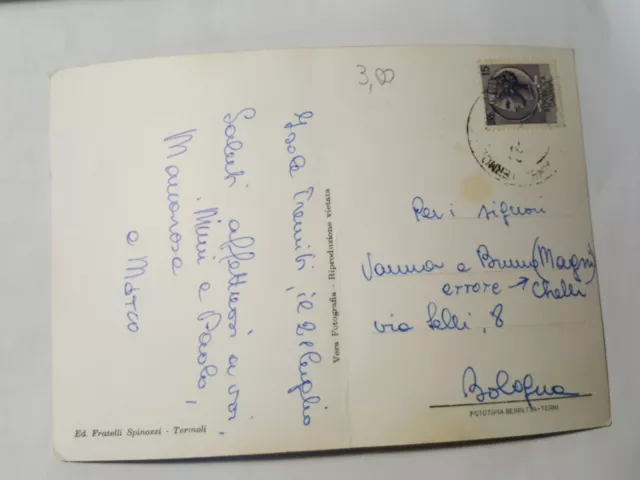 3,00
Isole Tremiti, il 21 luglio
Saluti affettuosi a voi,
Mimi e Paolo,
Mariarosa
e Marco
Vera Fotografia - Riproduzione vietata
Ed. Fratelli Spinozzi - Termoli
15
Per i signori
Vanna e Bruno (Magni)
errore → Chelli
via Selli, 8
Bologna
FOTOTIPIA BERRETTA - TERNI